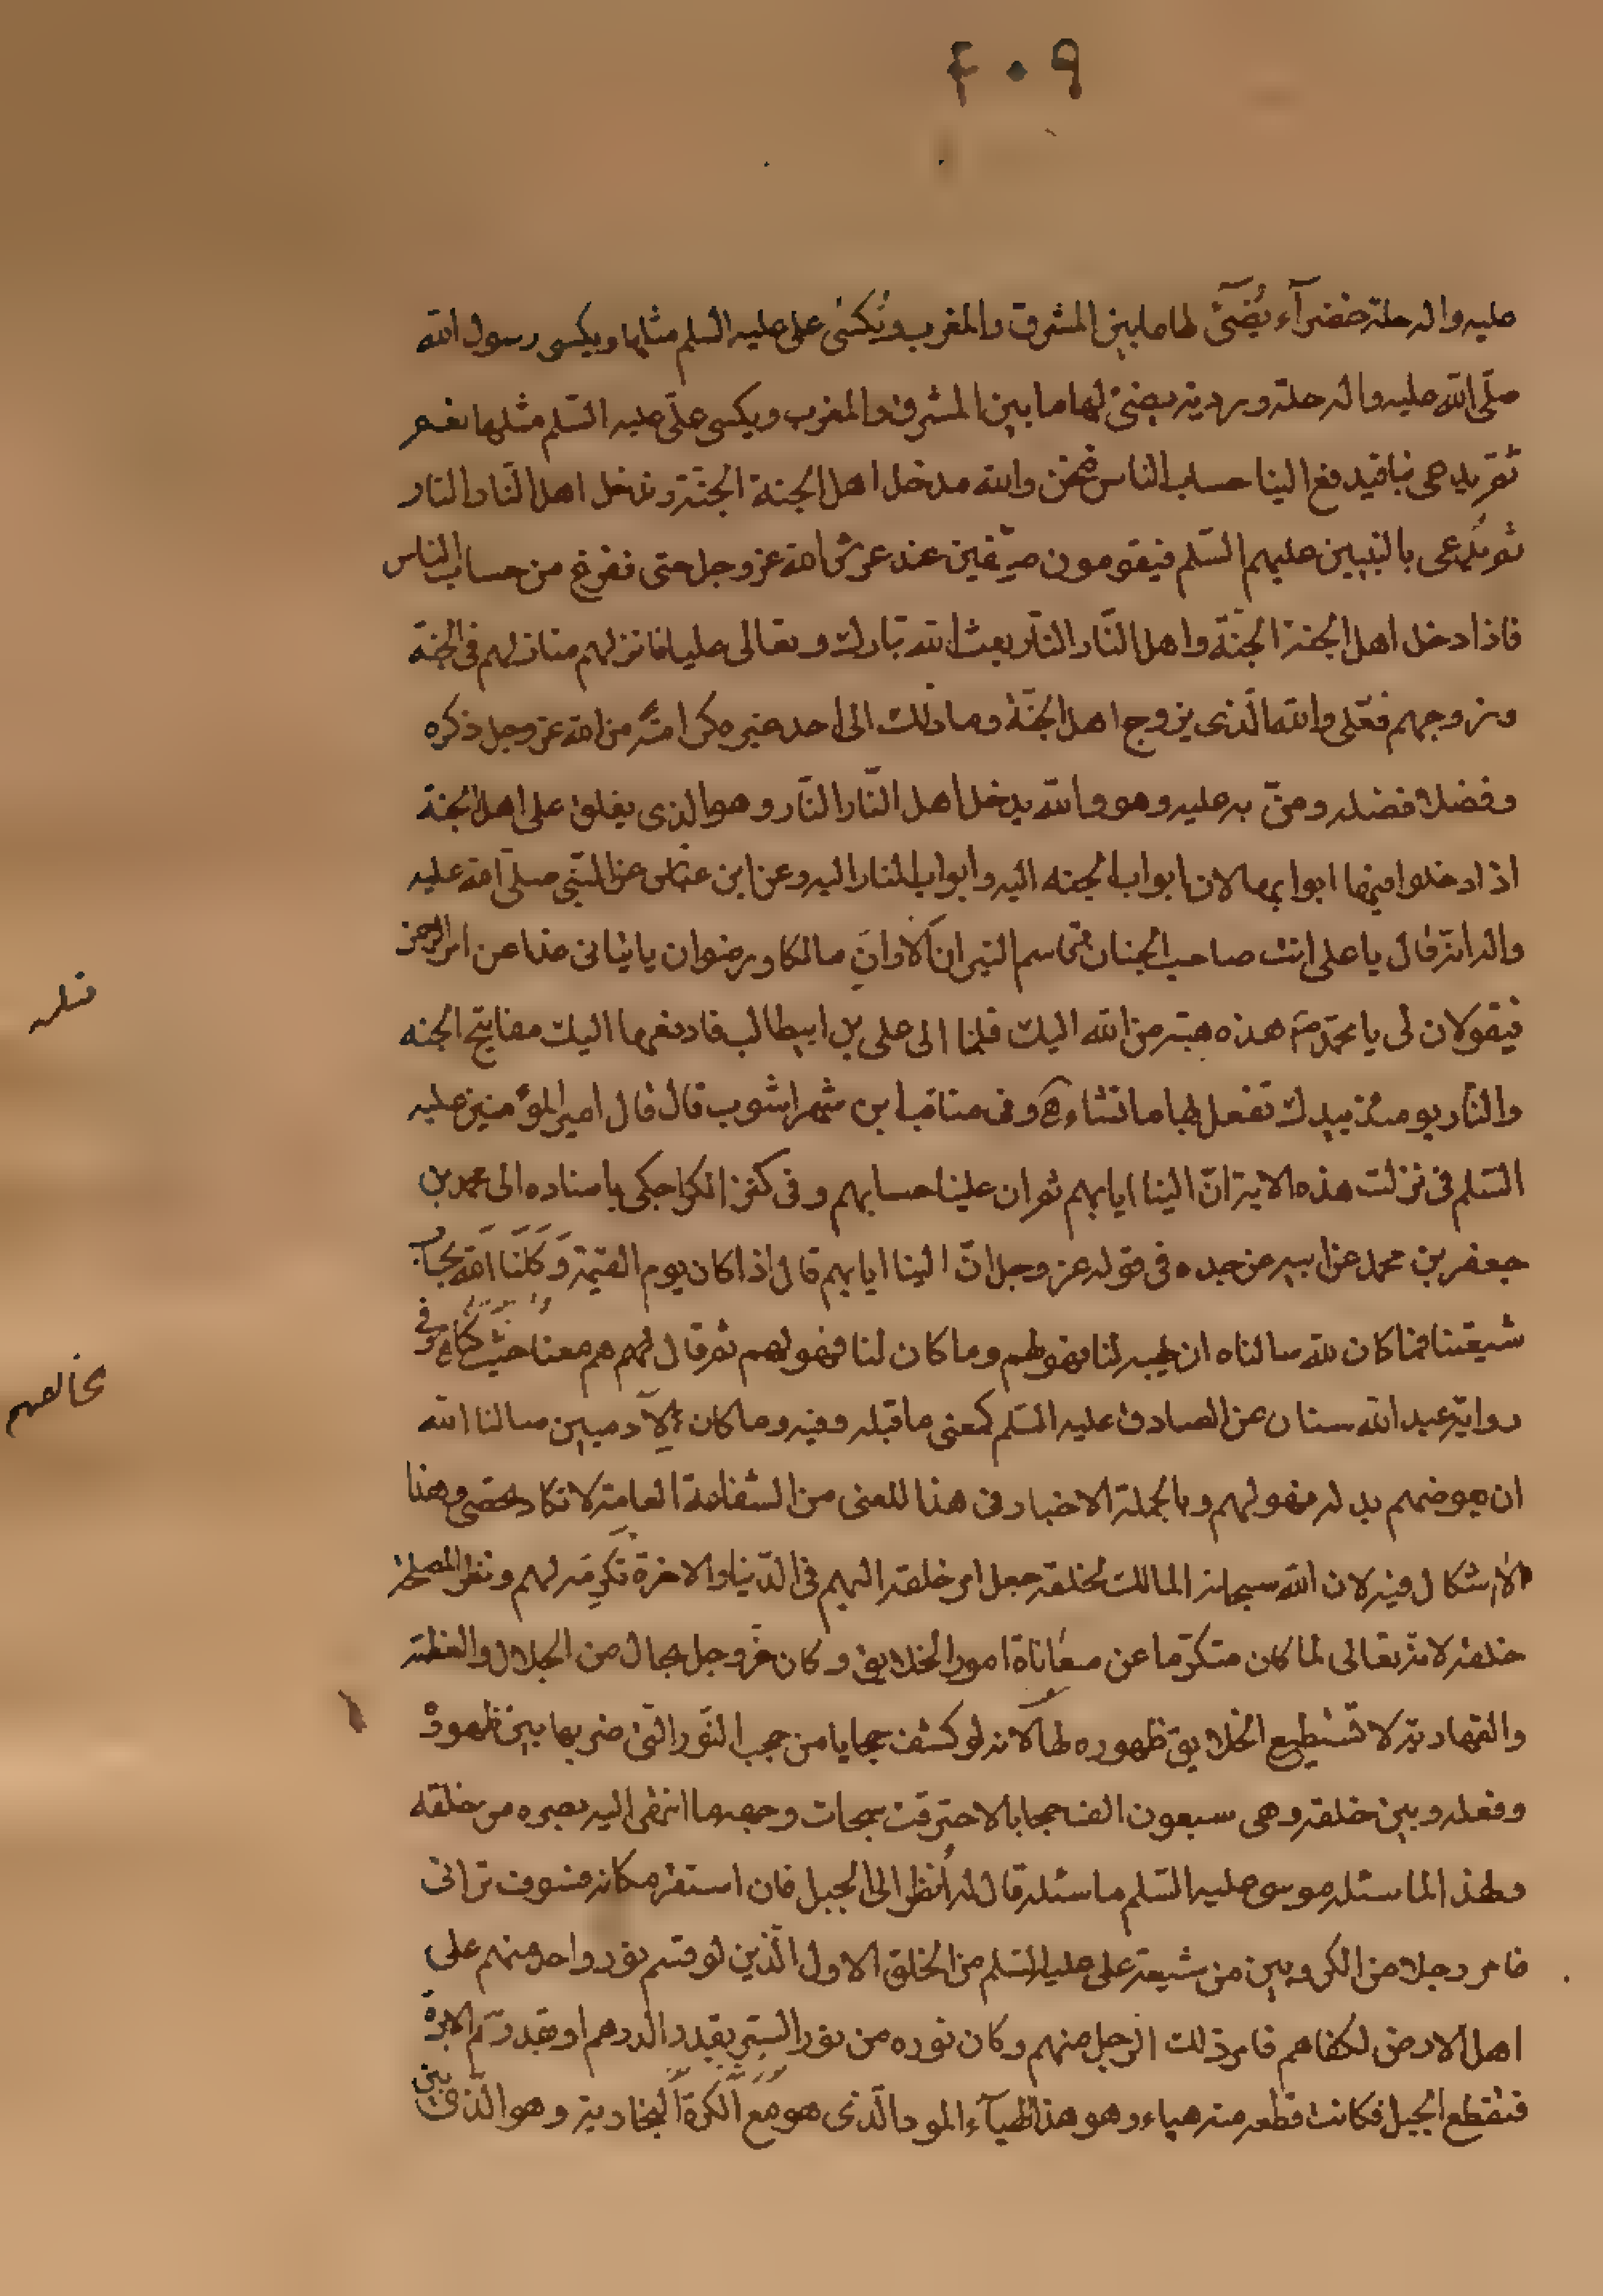 ۴۰۹
عليه واله حلة خضرآء يُضيٓئ لها ما بين المشرق والمغرب ويُكسٰى على عليه السلم مثلها ويكسى رسول الله
صلّى الله عليه واله حلة وردية يضئ لها ما بين المشرق والمغرب ويكسى علىّ عليه السّلم مثلها
ثم يدعى بنا فيدفع الينا حساب الناس فنحن والله مدخل اهل الجنة الجنّة وندخل اهل النّار النار
ثم يُدعى بالنبيين عليهم السّلم فيقومون صفّين عند عرش الله عز وجل حتى نفرغ من حساب الناس
فاذا دخل اهل الجنة الجنّة واهل النّار النّار بعث الله تبارك وتعالى عليا فانزلهم منازلهم فى الجنّة
وزوجهم فعلى والله الّذى يزوج اهل الجنّة وما ذلك الى احد غيره كرامةً من الله عز وجل ذكره
وفضلا فضله ومنّ به عليه وهو والله يدخل اهل النّار النّار وهو الذى يغلق على اهل الجنة
اذا دخلوا فيها ابوابها لان ابواب الجنه اليه وابواب النار اليه وعن ابن عباس عن النّبى صلّى الله عليه
واله انه قال يا على انت صاحب الجنان قاسم النيران الا وان مالكا ورضوان ياتيانى غدا عن امر الرحمن
فيقولان لى يا محمّد هذه هبة من الله اليك فلها الى على بن ابيطالب فادفعها اليك مفاتيح الجنه
والنّار يومئذ بيدك تفعل لها ما تشاء وفى مناقب ابن شهراشوب قال قال امير المؤمنين عليه
السّلم فى نزلت هذه الاية انّ الينا ايابهم ثم ان علينا حسابهم وفى كنز الكراجكى باسناده الى محمد بن
جعفر بن محمد عن ابيه عن جده فى قوله عز وجل انّ الينا ايابهم قال اذا كان يوم القيمة وَكَّلَنا الله بحساب
شيعتنا فما كان لله سالناه ان يهبه لنا فهو لهم وما كان لنا فهو لهم ثم قال لهم هم معنا حيث كنّا وفى
رواية عبد الله سنان عن الصادق عليه السّلم كمعنى ما قبله وفيه وما كان للآدميين سالنا الله
ان يعوضهم بدله فهو لهم وبالجملة الاخبار فى هذا المعنى من الشفاعة العامة لا تكاد تحصى وهذا
لا اشكال فيه لان الله سبحانه المالك لخلقه جعل امر خلقه اليهم فى الدّنيا والاخرة تَكرِمَة لهم ونظرا لمصلحة
خلقه لانّه تعالى لما كان متكرّما عن معاناة امور الخلايق وكان عزّ وجل بحال من الجلال والعظمة
والقهارية لا تستطيع الخلايق ظهوره لها لانه لو كشف حجابا من حجب النّور التى ضربها بين ظهوره
وفعله وبين خلقه وهى سبعون الف حجابا لاحترقت سبحات وجهه ما انتهى اليه بصره من خلقه
ولهذا لما سئله موسى عليه السّلم ما سئله قال له اُنظر الى الجبل فان استقر مكانه فسوف ترانى
فامر رجلا من الكروبيين من شيعة على عليه السّلم من الخلق الاول الّذين لو قسم نور واحد منهم على
اهل الارض لكفاهم فامر ذلك الرجل منهم وكان نوره من نور الستر بقدر الدرهم او بقدر سَمّ الابرة
فتقطع الجبل فكانت قطعه منه هباء وهو هذا الهبآء الموجود الّذى هو مَعَ الكُرَةِ البخارية وهو الذى بين
فسلمه
بحالهم